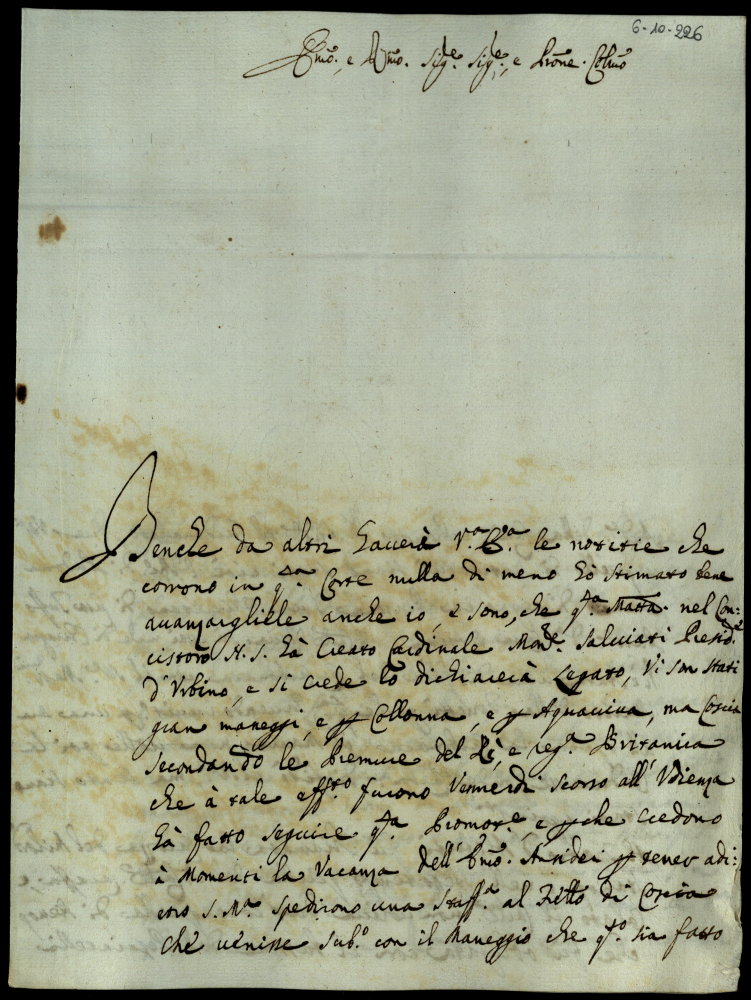 6-10-226
Emo. e Rmo. Sigre. Sigre., e Prone. Colmo
Benche da altri haverà V.a E.a le notitie che
corrono in q.ta Corte nulla di meno hò stimato bene
avanzargliele anche io, e sono, che q.ta Matta. nel Con:
cistoro N. S. hà Creato Cardinale Mons.e Salviati Presid.e
d'Urbino, e si crede lo dichiarerà Legato, Vi son stati
gran maneggi, e p Collonna, e p Aquaviva, ma Coscia
secondando le Premure del Rè, e reg.a Britanica
che à tale eff.to furono Vennerdì scorso all'Udienza
hà fatto seguire q.ta Promot.e, e p che credono
à Momenti la Vacanza dell'Emo. Ansidei p tener adi:
etro S. M.a spedirono una Staff.a al Fr̃ello di Coscia
che venisse sub.o con il Maneggio che q.to sia fatto